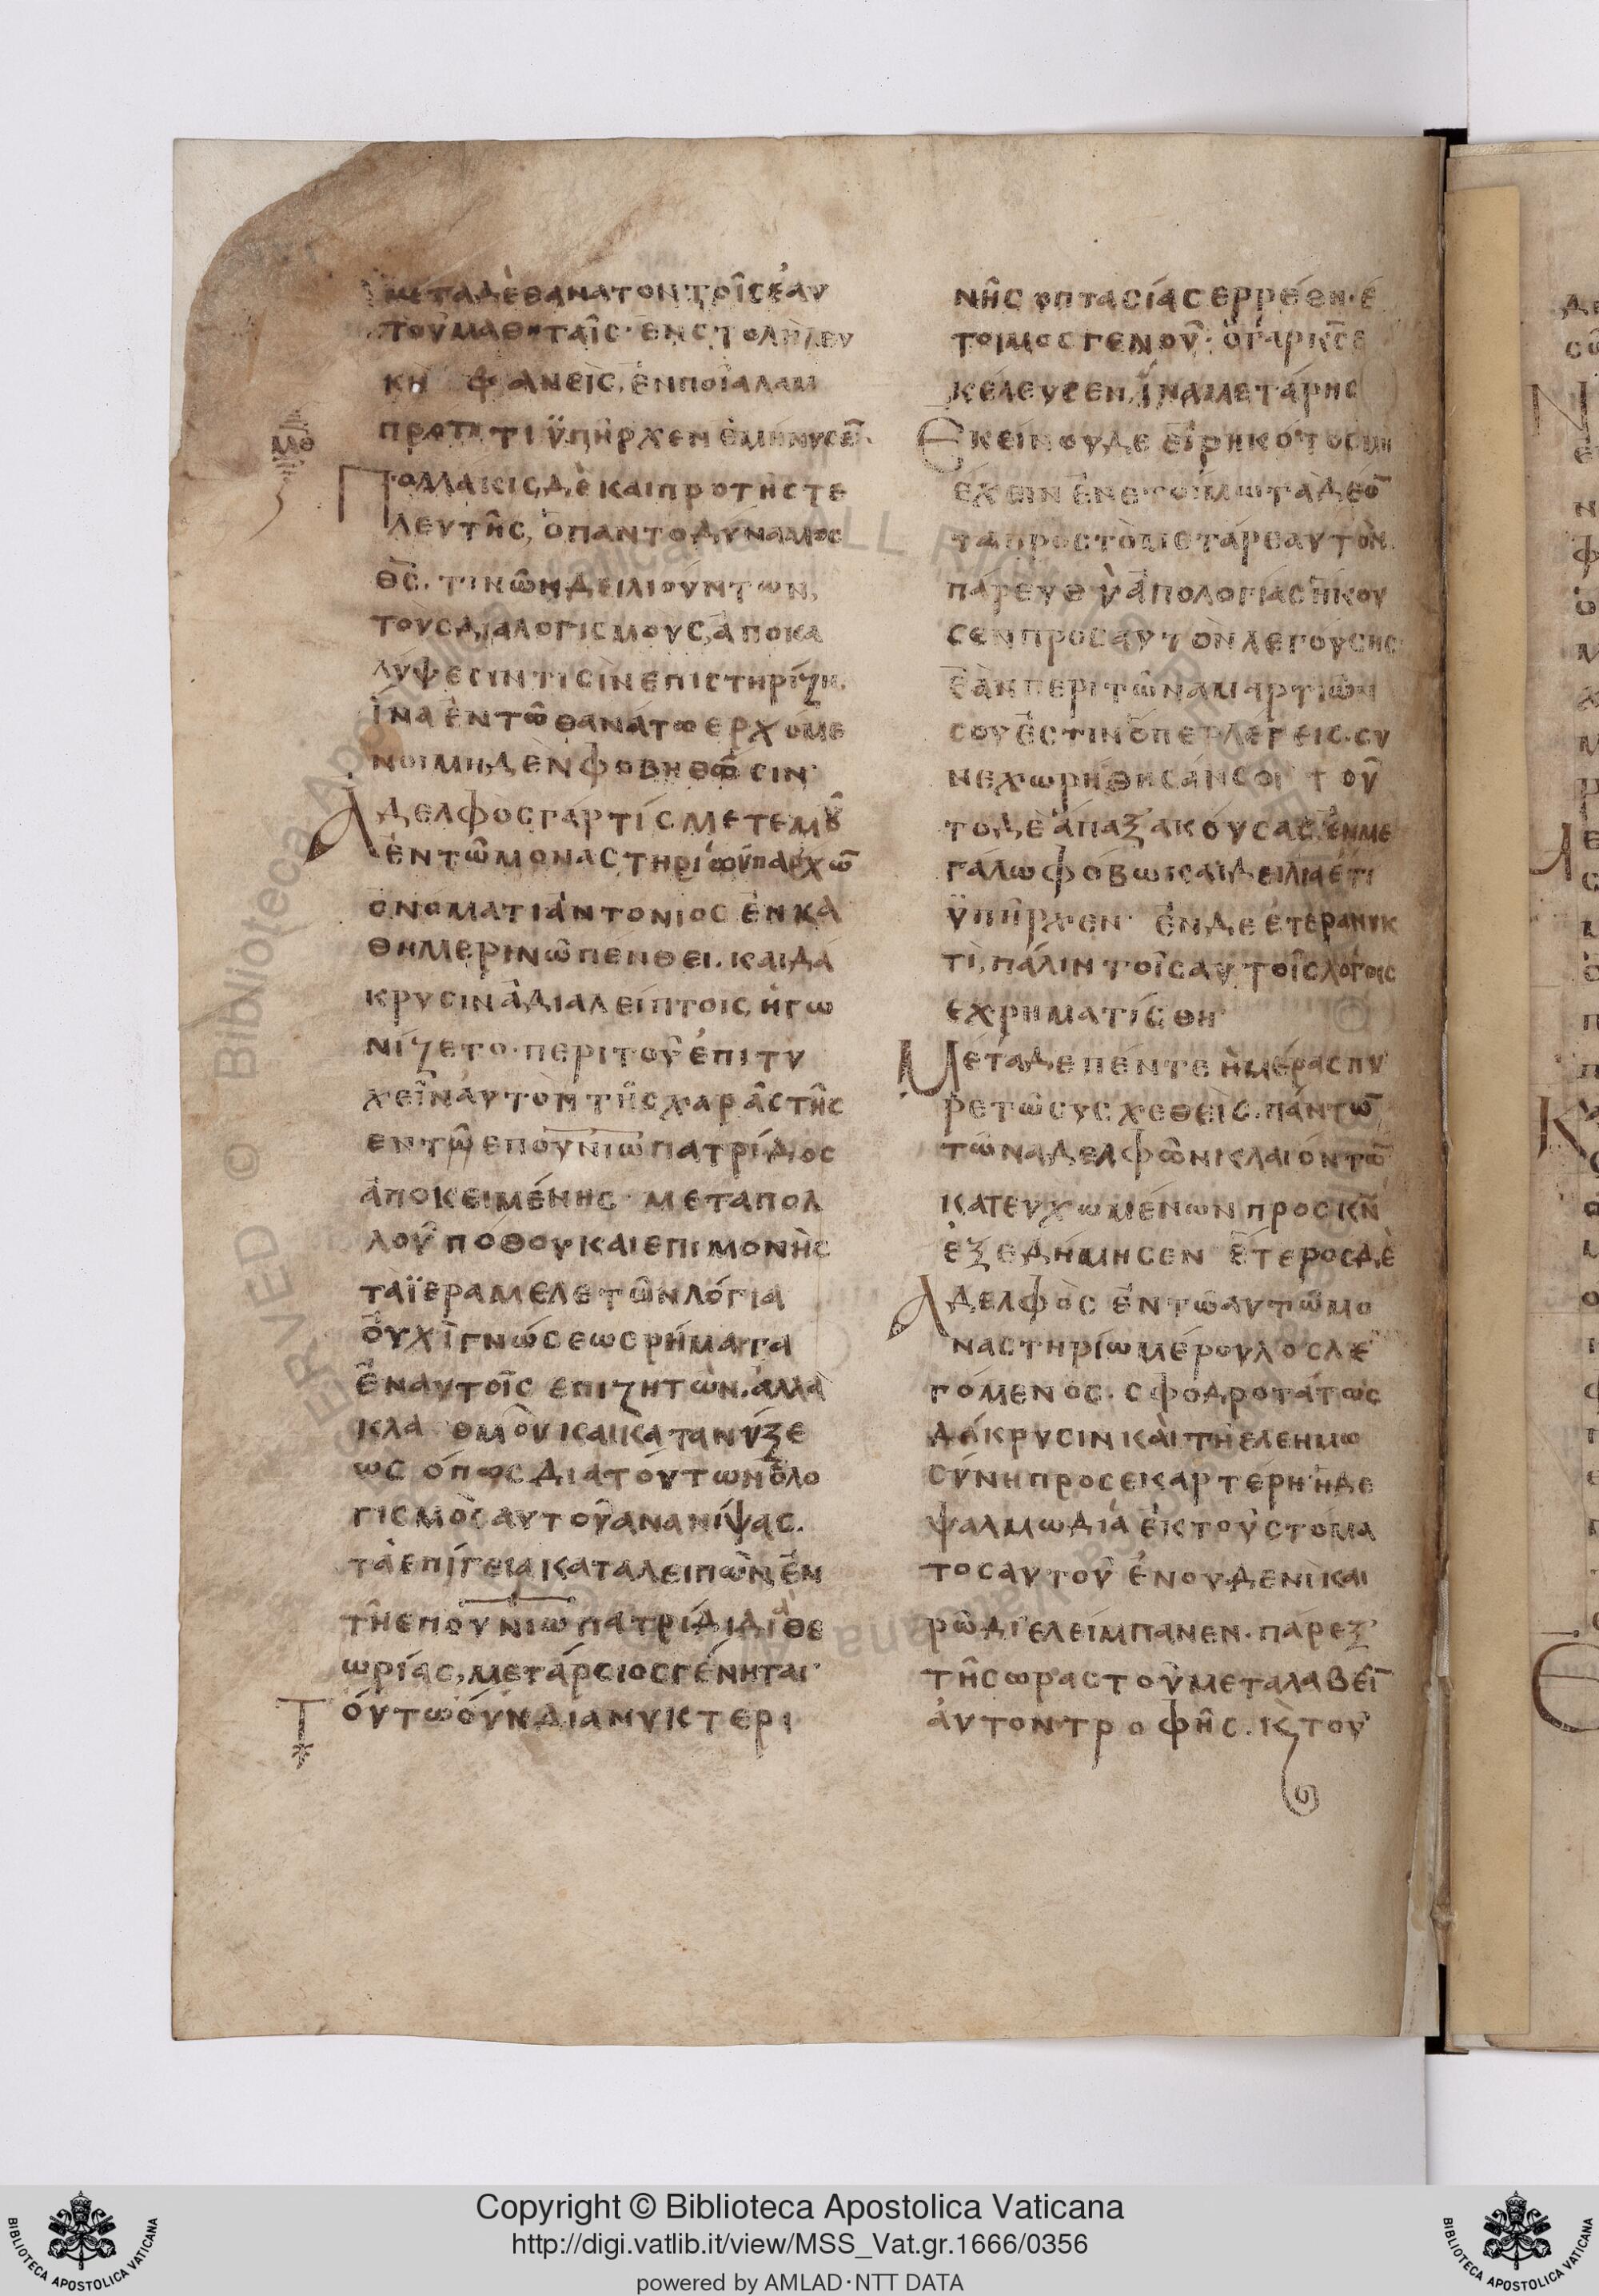 μετὰ δὲ θάνατον τοῖς ἑαυ
τοῦ μαθηταῖς· ἐν στολῆ λευ
κῆ φανεὶς, ἐν ποία λαμ
προτητι ϋπῆρχεν ἐμήνυσε̅·
μθ
Πολλακις δὲ και προ τῆς τε
λευτῆς, ὁ παντοδύναμος
θ̅ς̅. τινῶν δειλιούντων,
τοὺς διαλογισμοὺς, ἀποκα
λύψεσιν τισὶν επιστηρίζη,
ἵνα ἐν τῶ θανάτω ερχόμε
νοι μηδὲν φοβηθῶσιν·
Ἀδελφὸς γάρ τίς μετ εμοῦ
ἐν τῶ μοναστηρίω ϋπαρχω̅
ονοματι ἀντονιος ἐν κα
θημερινῶ πενθει. και δά
κρυσιν ἀδιαλείπτοις, ἠγω
νίζετο· περι τοῦ ἐπιτυ
χεῖν ἀυτὸν τῆς χαρᾶς τῆς
εν τῶ επο̅υ̅ν̅ι̅ω̅ πατρίδιος
ἀποκειμένης· μετα πολ
λοῦ πόθου και επιμονὴς
τὰ ϊερα μελετῶν λόγια
ὀυχὶ γνώσεως ρήματα
ἐν αυτοῖς επιζητὼν. ἀλλὰ
κλα θμὸν και κατανύξε
ως όπως δια τόυτων ὁ λο
γισμὸς αυτοῦ ανανίψας.
τὰ επίγεια καταλειπὼν, ἐν
τῆ επο̅υ̅ν̅ι̅ω̅ πατρίδι διὰ θε
ωρίας, μετάρσιος γένηται·
Τόυτω όυν δια νυκτερι
νῆς οπτασίας ερρέθη· έ
τοιμος γενοῦ· ὁ γὰρ κ̅ς̅ ε
κέλευσεν, ἵνα μετάρης
Ἐκείνου δε εἰρηκότος μη
έχειν ἐν ετοίμω τα δέο̅
τα προς τὸ μετάραι αυτὸν.
πάρευθὺ ἀπολογίας ἤκου
σεν προς αυτὸν λεγούσης
ἐὰν περι τῶν αμαρτιῶν
σου ἐστιν ὅπερ λεγεις. συ
νεχωρήθησάν σοι τοῦ
το δὲ ἅπαξ ακούσας. ἐν με
γάλω φόβω και δειλία έτι
ϋπῆρχεν· ἐν δε ἑτέρα νυκ
τὶ, πάλιν τοῖς αυτοῖς λόγοις
εχρηματίσθη·
Μετὰ δε πέντε ἡμέρας πυ
ρετῶ συσχεθεὶς. πάντω̅
τῶν αδελφῶν κλαιόντω̅
κατευχωμένων προς κ̅ν̅
ἐξεδήμησεν ἕτερος δὲ
Ἀδελφὸς ἐν τῶ αυτῶ μο
ναστηρίω μέρουλος λε
γόμενος. σφοδροτάτως
δάκρυσιν κὰι τῆ ελεημω
σύνη προσεκαρτέρη· ἡ δε
ψαλμωδιά ἐκ τοῦ στόμα
τος αυτοῦ ἐν ουδενὶ και
ρῶ διελείμπανεν. πάρεξ
τῆς ωρας τοῦ μεταλαβεῖ̅
ἀυτον τροφῆς. κ̀ τοῦ
Copyright © Biblioteca Apostolica Vaticana
http://digi.vatlib.it/view/MSS_Vat.gr.1666/0356
powered by AMLAD·NTT DATA
BIBLIOTECA APOSTOLICA VATICANA
BIBLIOTECA APOSTOLICA VATICANA